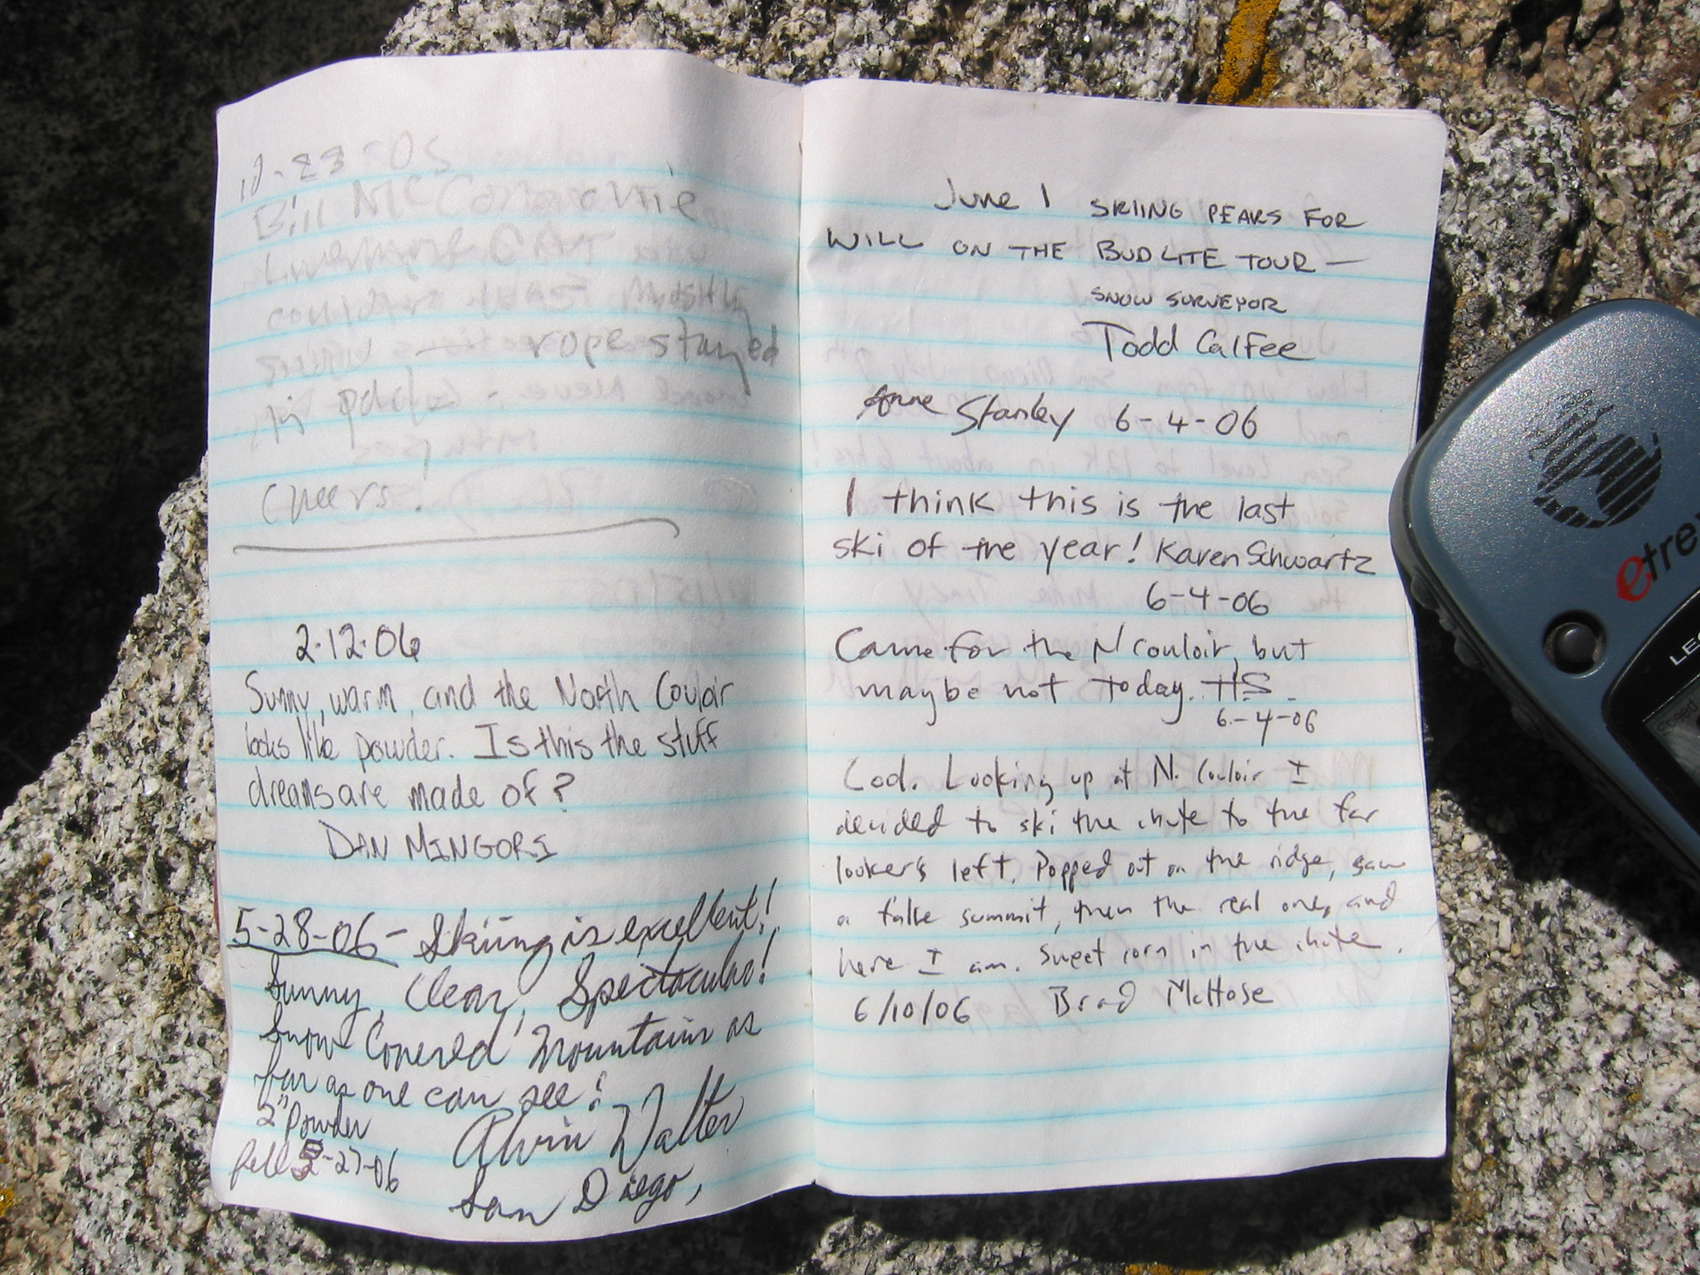 12-23-05
Bill McConachie
Livermore CA
rope stayed
in pack.
Cheers!
2·12·06
Sunny, warm, and the North Couloir
looks like powder. Is this the stuff
dreams are made of?
DAN MINGORI
5-28-06 - Skiing is excellent!
Sunny, Clear, Spectacular!
Snow Covered Mountains as
far as one can see!
2" Powder
fell 5-27-06
Alvin Walter
San Diego,
June 1 SKIING PEAKS FOR
WILL ON THE BUD LITE TOUR —
SNOW SURVEYOR
Todd Calfee
Anne Stanley 6-4-06
I think this is the last
ski of the year! Karen Schwartz
6-4-06
Came for the N couloir, but
maybe not today. HS.
6-4-06
Cod. Looking up at N. Couloir I
decided to ski the chute to the far
looker's left. Popped out on the ridge, saw
a false summit, then the real one, and
here I am. Sweet corn in the chute.
6/10/06 Brad McHose
etre
LE